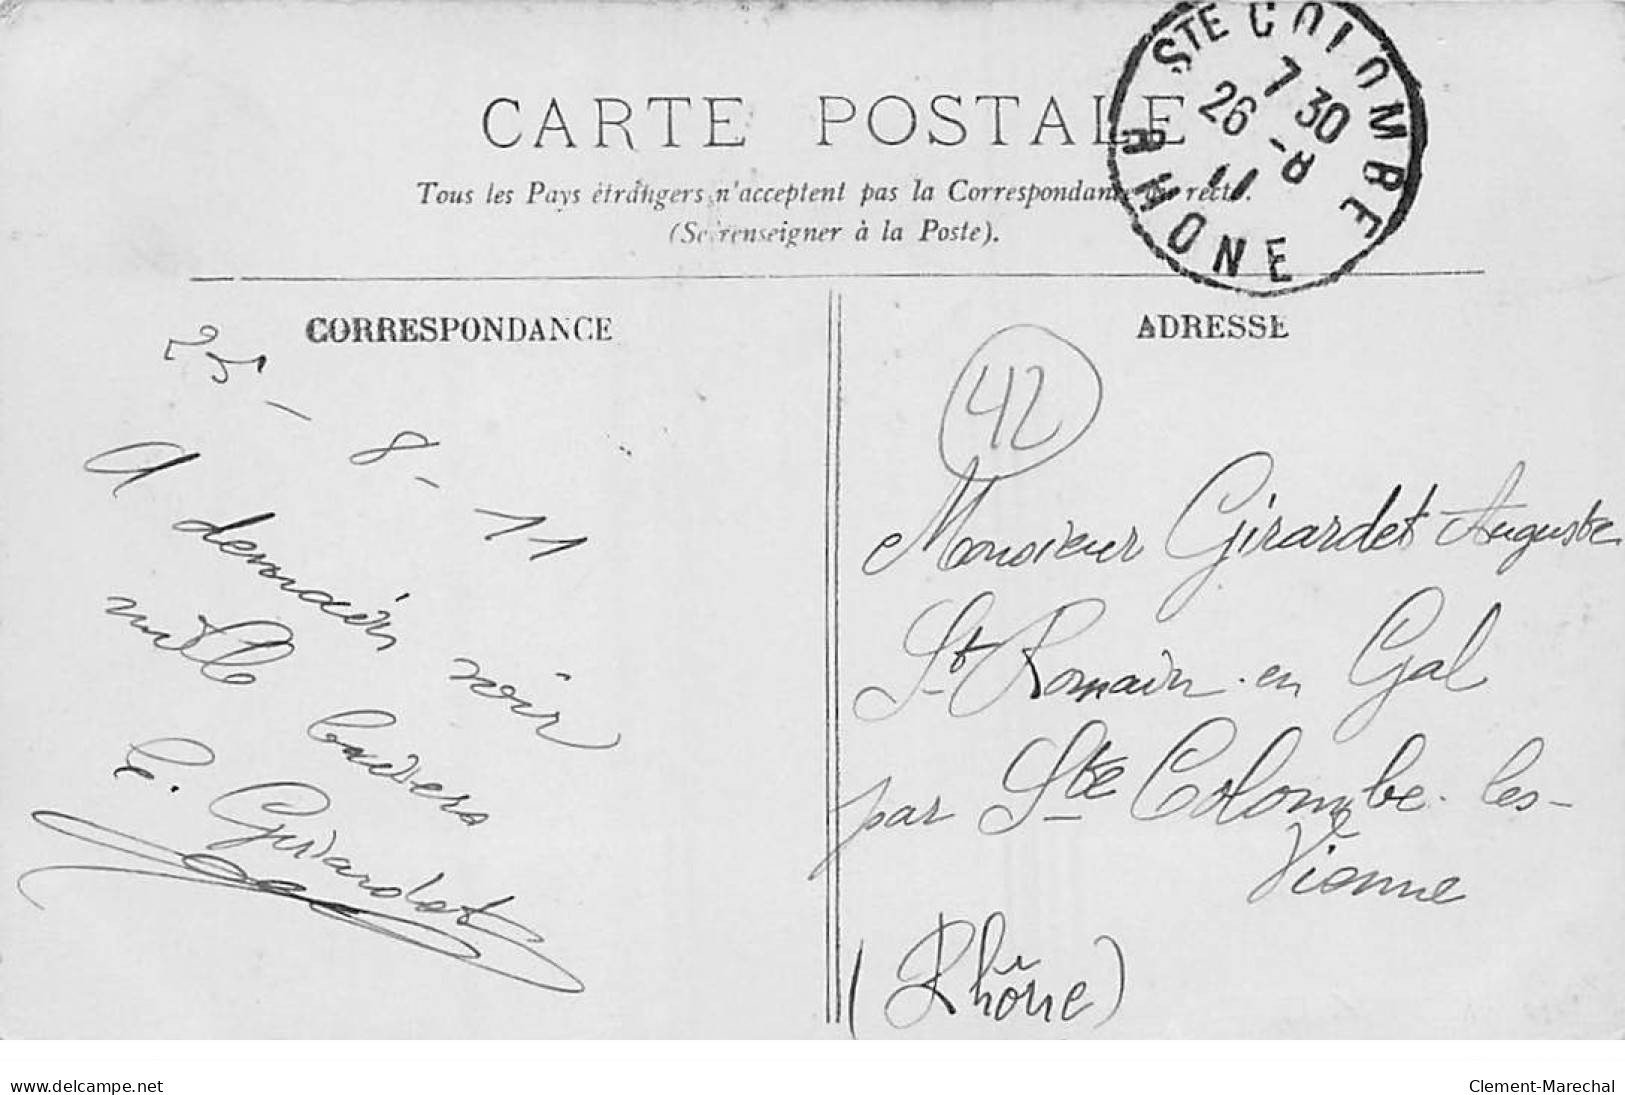 CARTE POSTALE
Tous les Pays étrangers n'acceptent pas la Correspondance au recto.
(Se renseigner à la Poste).
STE COLOMBE
7 30
26 -8
11
RHONE
CORRESPONDANCE
25-8-11
A demain soir
mille baisers
E. Girardet
ADRESSE
42
Monsieur Girardet Auguste
St Romain en Gal
par Ste Colombe-les-
Vienne
(Rhône)
www.delcampe.net
Clement-Marechal